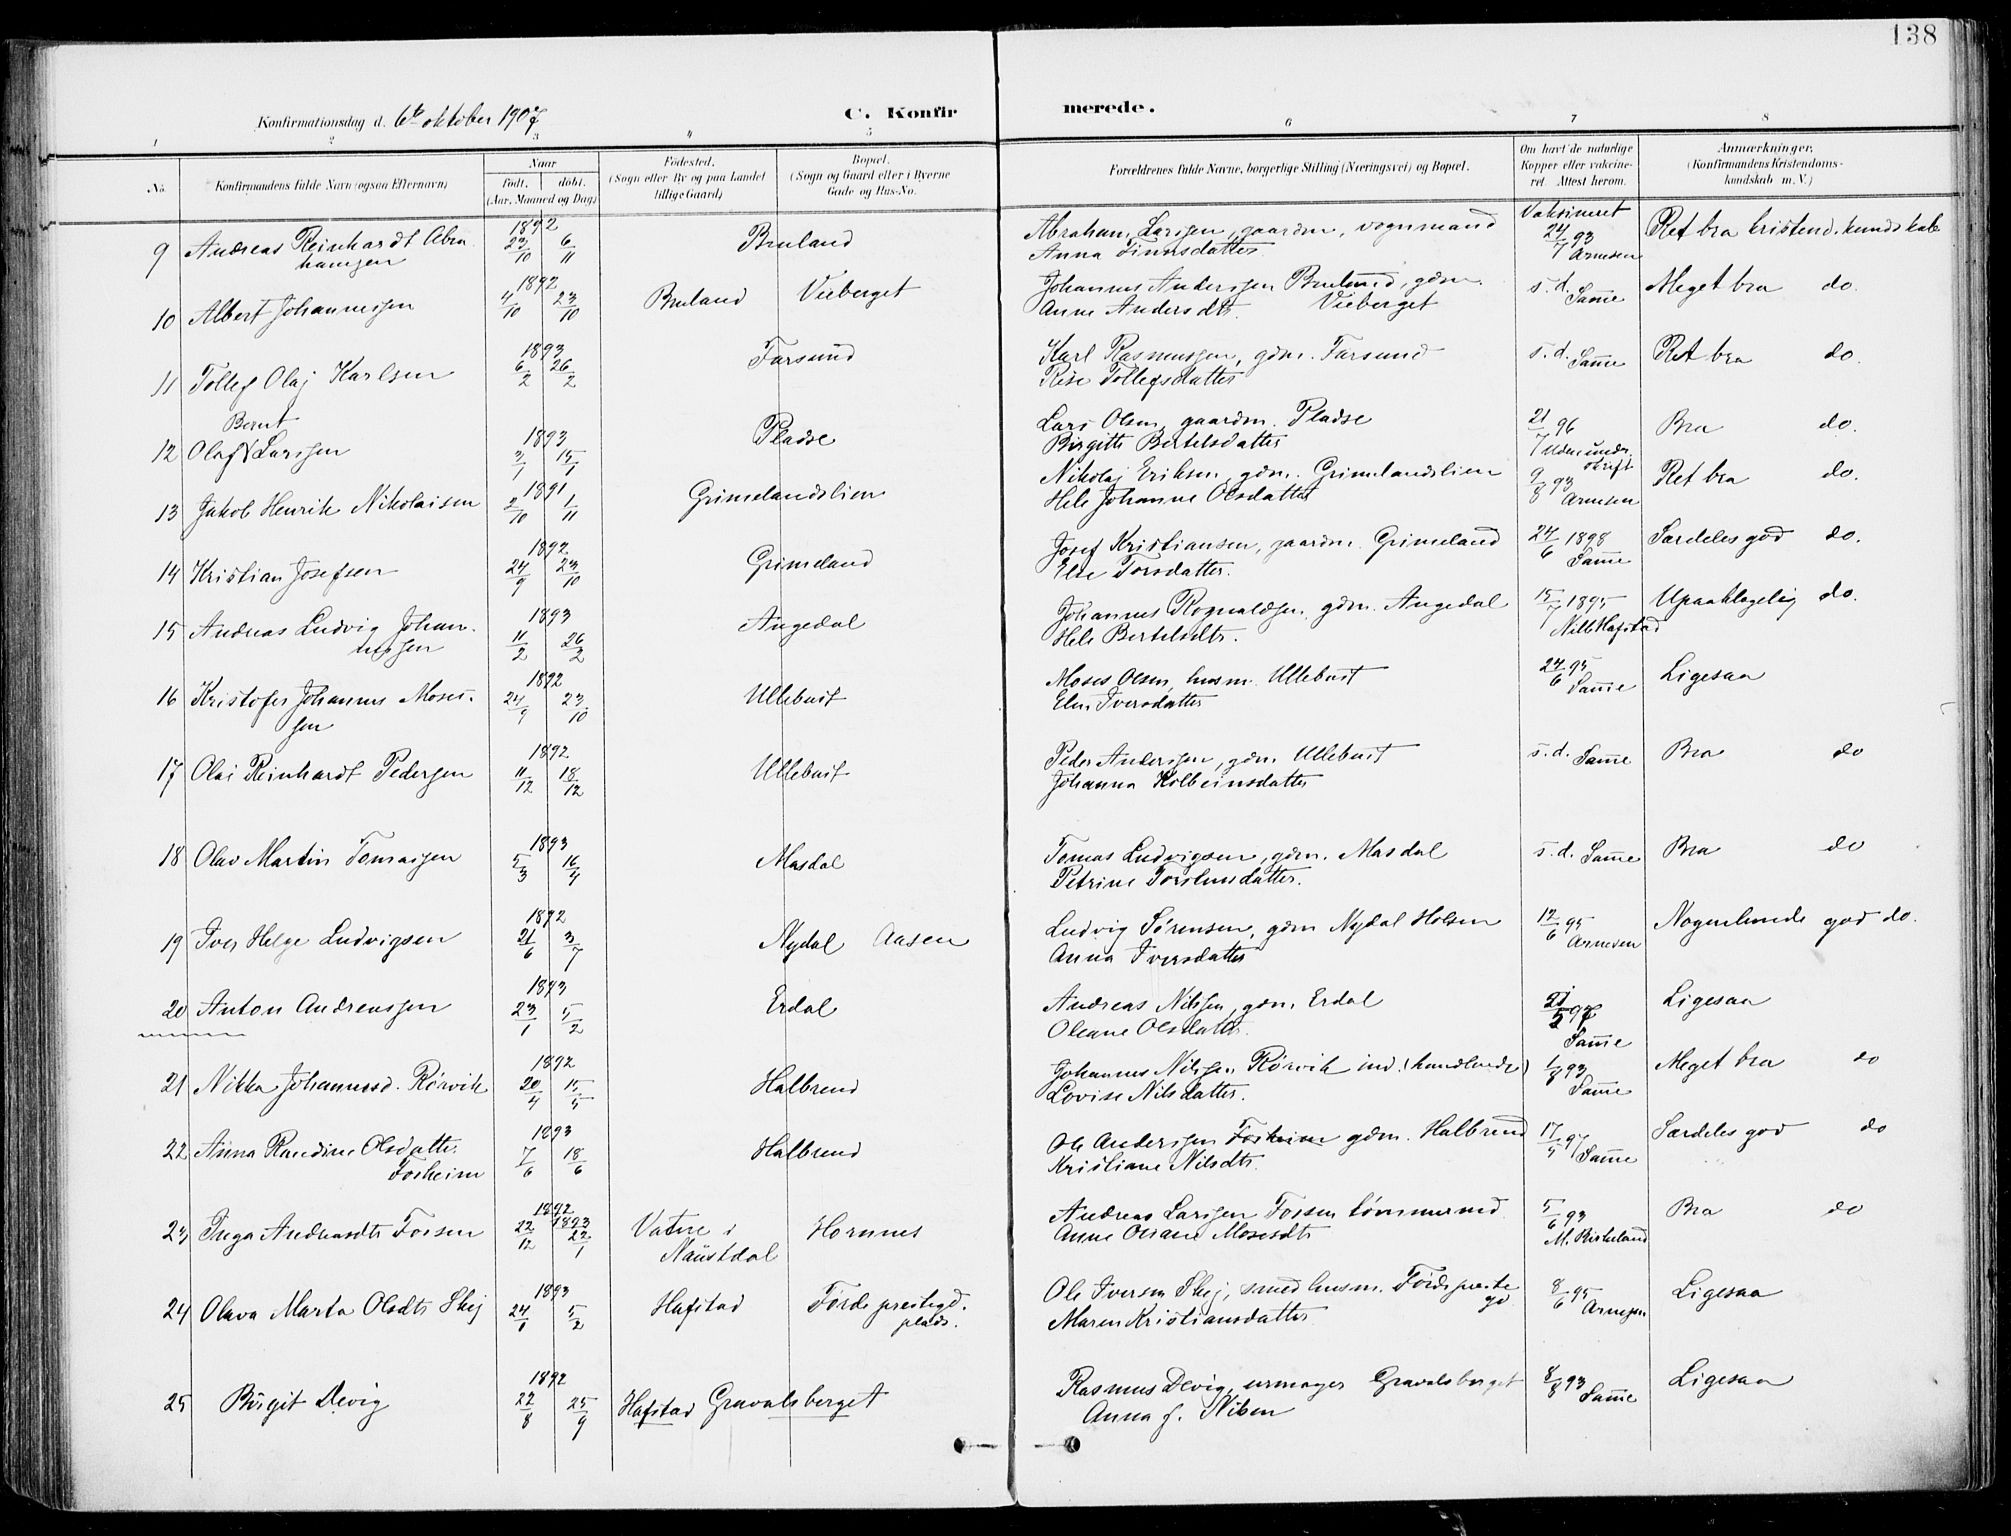 138
Konfirmationsdag d. 6te oktober 1907
C. Konfirmerede.
1 2 3 4 5 6 7 8
No. Konfirmandens fulde Navn (ogsaa Efternavn) Naar født. døbt. (Aar, Maaned og Dag) Fødested. (Sogn eller By og paa Landet tillige Gaard) Bopæl. (Sogn og Gaard eller i Byerne Gade og Hus-No. Forældrenes fulde Navne, borgerlige Stilling (Næringsvei) og Bopæl. Om havt de naturlige Kopper eller vakcineret. Attest herom. Anmærkninger, (Konfirmandens Kristendomskundskab m. V.)
9 Andreas Reinhardt Abrahamsen 1892 23/10 6/11 Bruland Abraham Larssen, gaardm, vognmand Vaksineret 24/7 93 Arnesen Ret bra kristend. kundskab
Anna Finnsdatter
10 Albert Johannessen 1892 4/10 23/10 Bruland Vieberget Johannes Anderssen Bruland, gdm. s. d. Samme Meget bra do.
Anne Andersdtr. Vieberget
11 Tollef Olaj Karlsen 1893 6/2 26/2 Farsund Karl Rasmussen, gdm. Farsund s. d. Samme Ret bra do.
Rise Tollefsdatter
12 Olaf Bernt Larssen 1893 3/1 15/1 Pladse Lars Olsen, gaardm. Pladse 21/7 96 Uden underskrift Bra do.
Birgitte Bertelsdatter
13 Jakob Henrik Nikolaisen 1891 2/10 1/11 Grimelandslien Nikolaj Eriksen, gdm. Grimelandslien 9/8 93 Arnesen Ret bra do.
Hele Johanne Olsdatter
14 Kristian Josefsen 1892 24/9 23/10 Grimeland Josef Kristiansen, gaardm. Grimeland 24/6 1898 Samme Særdeles god do.
Else Torsdatter.
15 Andreas Ludvig Johannessen 1893 11/2 26/2 Angedal Johannes Rognaldsen, gdm. Angedal 15/7 1895 Nils Hafstad Upaaklagelig do.
Hele Bertelsdtr.
16 Kristofer Johannes Mosessen 1892 24/9 23/10 Ullebust Moses Olsen, husm. Ullebust 24/6 95 Samme Ligesaa
Elen Iversdatter
17 Olai Reinhardt Pedersen 1892 11/12 18/12 Ullebust Peder Anderssen, gdm. Ullebust s. d. Samme Bra do
Johanna Kolbeinsdatter
18 Olav Martin Tomassen 1893 5/3 16/4 Masdal Tomas Ludvigsen, gdm. Masdal s. d. Samme Bra do
Petrine Torstensdatter.
19 Iver Helge Ludvigsen 1892 21/6 3/7 Nydal Aasen Ludvig Sørensen, gdm Nydal Holsen 12/6 95 Arnesen Nogenlunde god do.
Anna Iversdatter
20 Anton Andreassen 1893 23/1 5/2 Erdal Andreas Nilssen, gdm. Erdal 21/5 97 Samme Ligesaa
Oleane Olsdatter
21 Nikka Johannesd. Rørvik 1892 20/4 15/5 Halbrend Johannes Nilssen Rørvik ind. (handlende) 1/8 93 Samme Meget bra do
Lovise Nilsdatter.
22 Anna Randine Olsdatter Fosheim 1893 7/6 18/6 Halbrend Ole Anderssen Fosheim gdm. Halbrend 17/5 97 Samme Særdeles god do
Kristiane Nilsdtr.
23 Inga Andreasdtr Fossen 1892 22/12 1893 22/1 Vatne i Naustdal Hornnes Andreas Larssen Fossen tømmermd 5/6 93 M. Birkeland Bra do
Anne Oliane Mosesdtr
24 Olava Marta Olsdtr Skej 1893 24/1 5/2 Hafstad Førde prestegd. plads. Ole Iversen Skej, smed husm. Førde prestegd 8/6 95 Arnesen Ligesaa
Maren Kristiansdatter
25 Birgit Devig 1892 22/8 25/9 Hafstad Gravalsberget Rasmus Devig, urmager Gravalsberget 8/8 93 Samme Ligesaa
Anna f. Nilsen